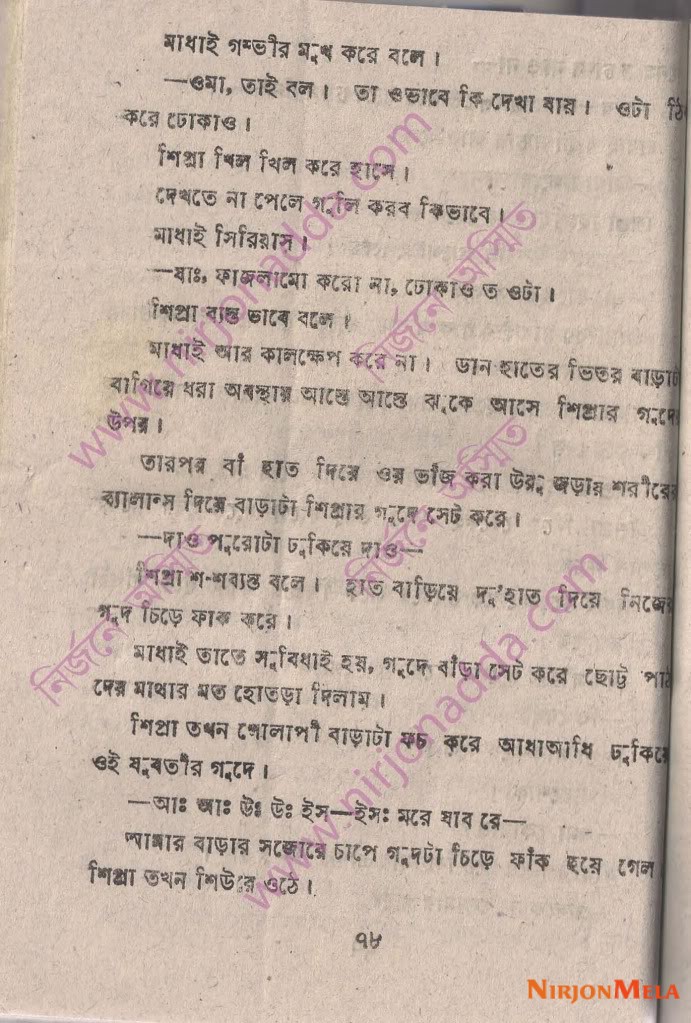 মাধাই গম্ভীর মুখ করে বলে।
—ওমা, তাই বল। তা ওভাবে কি দেখা যায়। ওটা ঠি
করে ঢোকাও।
শিপ্রা খিল খিল করে হাসে।
দেখতে না পেলে গুলি করব কিভাবে।
মাধাই সিরিয়াস।
—যাঃ, ফাজলামো করো না, ঢোকাও ত ওটা।
শিপ্রা ব্যস্ত ভাবে বলে।
মাধাই আর কালক্ষেপ করে না। ডান হাতের ভিতর বাড়াটা
বাগিয়ে ধরা অবস্থায় আস্তে আস্তে ঝুকে আসে শিপ্রার গুদে
উপর।
তারপর বাঁ হাত দিয়ে ওর ভাঁজ করা উরু জড়ার শরীরের
ব্যালান্স দিয়ে বাড়াটা শিপ্রার গুদে সেট করে।
—দাও পুরোটা ঢুকিয়ে দাও—
শিপ্রা শ-শব্যস্ত বলে। হাত বাড়িয়ে দু'হাত দিয়ে নিজের
গুদ চিড়ে ফাক করে।
মাধাই তাতে সুবিধাই হয়, গুদে বাঁড়া সেট করে ছোট্ট পাঠ
দের মাথার মত হোতড়া দিলাম।
শিপ্রা তখন গোলাপী বাড়াটা ফচ করে আধাআধি ঢুকিয়ে
ওই যুবতীর গুদে।
—আঃ আঃ উঃ উঃ ইস—ইসঃ মরে যাব রে—
আমার বাড়ার সজোরে চাপে গুদটা চিড়ে ফাঁক হয়ে গেল।
শিপ্রা তখন শিউরে ওঠে।
৭৮
www.nirjonadda.com
নির্জনে অস্মিত
নির্জনে অস্মিত
নির্জনে অস্মিত
www.nirjonadda.com
NIRJONMELA